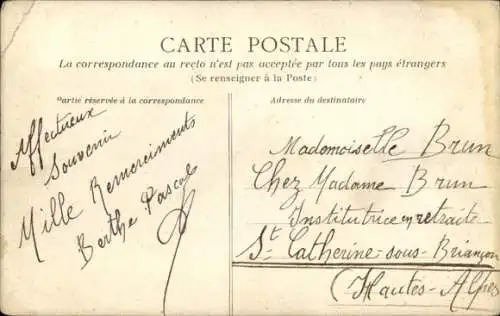 CARTE POSTALE
La correspondance au recto n'est pas acceptée par tous les pays étrangers
(Se renseigner à la Poste)
Partié réservée à la correspondance
Affectueux
Souvenir
Mille Remerciments
Berthe Pascal
Adresse du destinataire
Mademoiselle Brun
Chez Madame Brun
Institutrice en retraite
St Catherine-sous-Briançon
(Hautes-Alpes